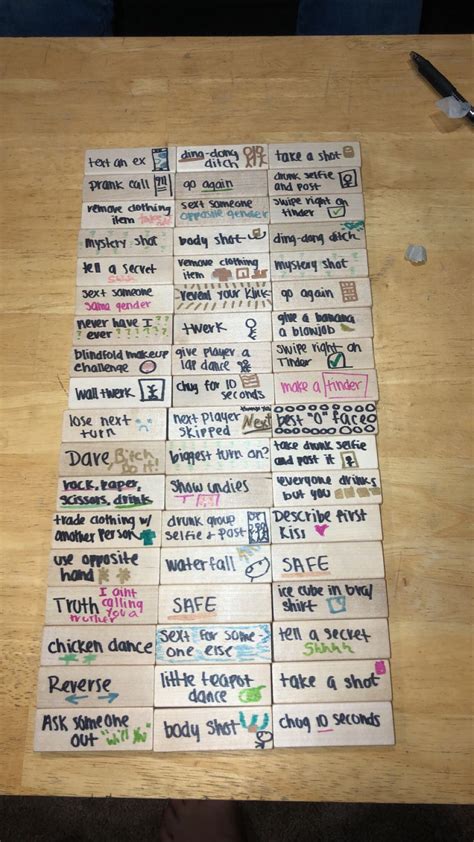 text an ex
ding-dong ditch
take a shot
prank call 911
go again
drunk selfie and post
remove clothing item
sext someone opposite gender
swipe right on tinder
mystery shot
body shot
ding-dong ditch
tell a secret
remove clothing item
mystery shot
sext someone same gender
reveal your kink
go again
never have I ever
twerk
give a banana a blowjob
blindfold makeup challenge
give player a lap dance
swipe right on Tinder
wall twerk
chug for 10 seconds
make a tinder
lose next turn
next player skipped
Next
best "O" face
Dare Bitch do it!
biggest turn on?
take drunk selfie and post it
rock, paper, scissors, drink
show undies
everyone drinks but you
trade clothing w/ another person
drunk group selfie & post
Describe first kiss
use opposite hand
waterfall
SAFE
Truth I aint calling you a truther
SAFE
ice cube in bra/ shirt
chicken dance
sext for some- one else
tell a secret
Shhhh
Reverse
little teapot dance
take a shot
Ask someone out
body shot
chug 10 seconds